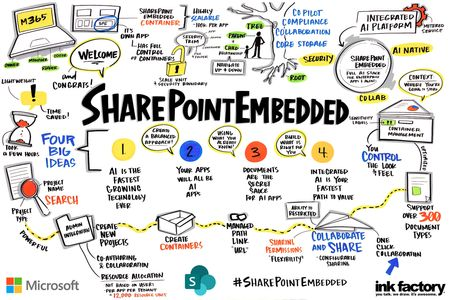 M365
OWNER
MANAGER
READER
GUEST
WELCOME
and
CONGRATS!
LIGHTWEIGHT!
SPE
SHAREPOINT
EMBEDDED
CONTAINER
ITS OWN
APP
HAS FULL
CONTROL OF
CONTAINERS
HIGHLY
SCALABLE
SECURITY
SCALE UNIT +
SECURITY BOUNDARY
TREE
PARENT
CHILD
RELATIONSHIP
NAVIGATE
UP + DOWN
SECURITY
ROOT
COPILOT
COMPLIANCE
COLLABORATION
CORE STORAGE
INTEGRATED
AI PLATFORM
METERED
SERVICE
SECURITY
SHAREPOINT
EMBEDDED
AI NATIVE
COLLAB
CONTEXT:
WHERE'S
YOUR DATA?
SHAREPOINTEMBEDDED
SENSITIVITY
LABELS
CONTAINER
MANAGEMENT
YOU
CONTROL
THE LOOK
& FEEL
TIME
SAVED!
TOOK
A FEW HOURS
FOUR
BIG
IDEAS
CREATE
A BALANCED
APPROACH!
1
AI IS THE
FASTEST
GROWING
TECHNOLOGY
EVER
USING
WHAT YOU
ALREADY
KNOW!
2
YOUR APPS
WILL ALL BE
AI APPS
BUILD
WHAT IS
RIGHT FOR
YOU!
3
DOCUMENTS
ARE THE
SECRET
SAUCE FOR
AI APPS
4
INTEGRATED
AI IS YOUR
FASTEST
PATH TO
VALUE
PROJECT
NAME
SEARCH
PROJECT
TYPE
POWERFUL
ADMIN
CREATE
NEW
PROJECTS
CO-AUTHORING
& COLLABORATION
RESOURCE ALLOCATION
NOT BASED ON USERS!
PER APP +
PER TENANT
CREATE
CONTAINERS
MANAGED
PATH
LINK
"URL"
SHARING
PERMISSIONS
"FLEXIBILITY"
ABILITY TO
RESTRICTED
COLLABORATE
AND SHARE
CONFIGURABLE
SHARING
ONE
CLICK
COLLABORATION
SUPPORT
OVER 300
DOCUMENT
TYPES
Microsoft
S
#SHAREPOINTEMBEDDED
ink factory
you talk. we draw. it's awesome.